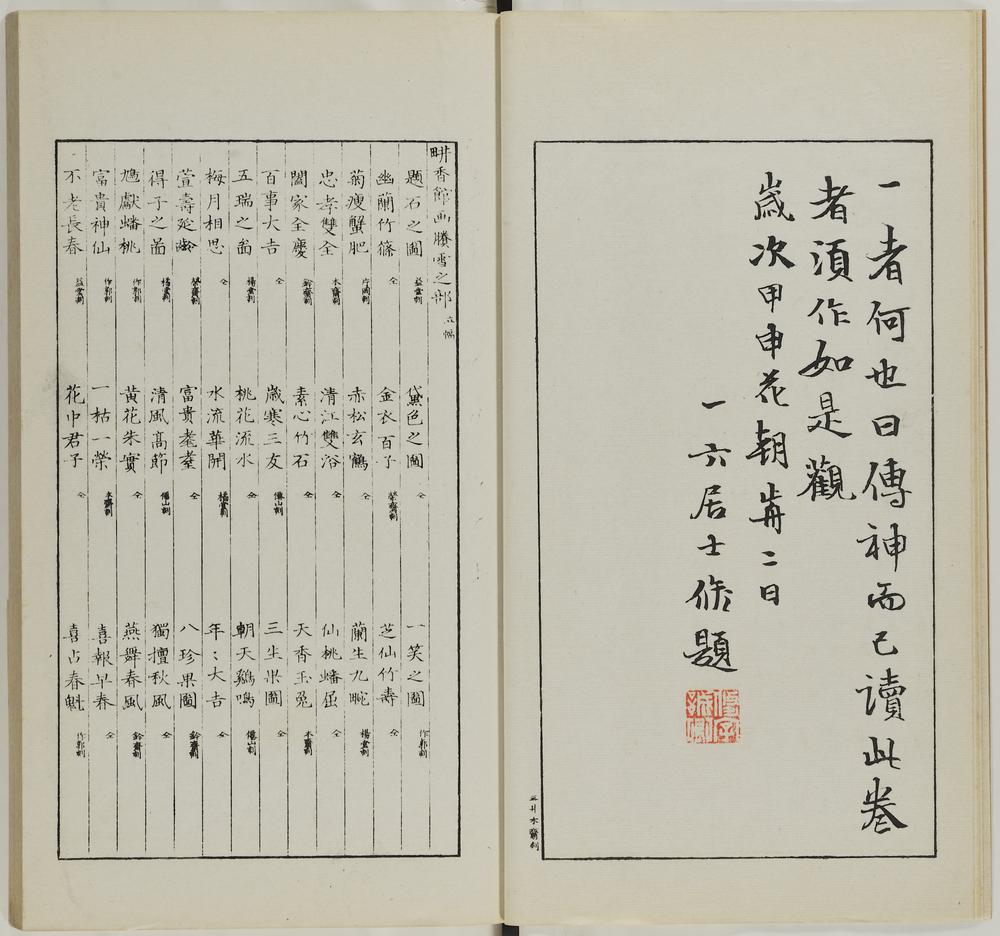 一者何也曰傳神而已讀此卷
者須作如是觀
歲次甲申花朝歬二日
一六居士脩題
三井木齋刻
畊香館画賸雪之部
題石之圖 益堂刻 黛色之圖 仝 一笑之圖 作郭刻
幽蘭竹篠 仝 金衣百子 榮齋刻 芝仙竹壽 仝
菊瘦蟹肥 赤松玄鶴 仝 蘭生九畹 楊堂刻
忠孝雙全 木齋刻 清江雙浴 仝 仙桃蟠屈 仝
闔家全慶 鈴齋刻 素心竹石 仝 天香玉兎 木齋刻
百事大吉 仝 歲寒三友 僊山刻 三生果圖 仝
五瑞之啚 楊堂刻 桃花流水 仝 朝天鷄鳴 僊山刻
梅月相思 仝 水流華開 橘堂刻 年〻大吉 仝
萱壽延齡 榮齋刻 富貴耄耋 仝 八珍果圖 鈴齋刻
得子之啚 橘堂刻 清風高節 僊山刻 獨擅秋風 仝
馗獻蟠桃 作郭刻 黃花朱實 仝 燕舞春風 鈴齋刻
富貴神仙 作郭刻 一枯一榮 木齋刻 喜報早春 仝
不老長春 益堂刻 花中君子 仝 喜占春魁 作郭刻